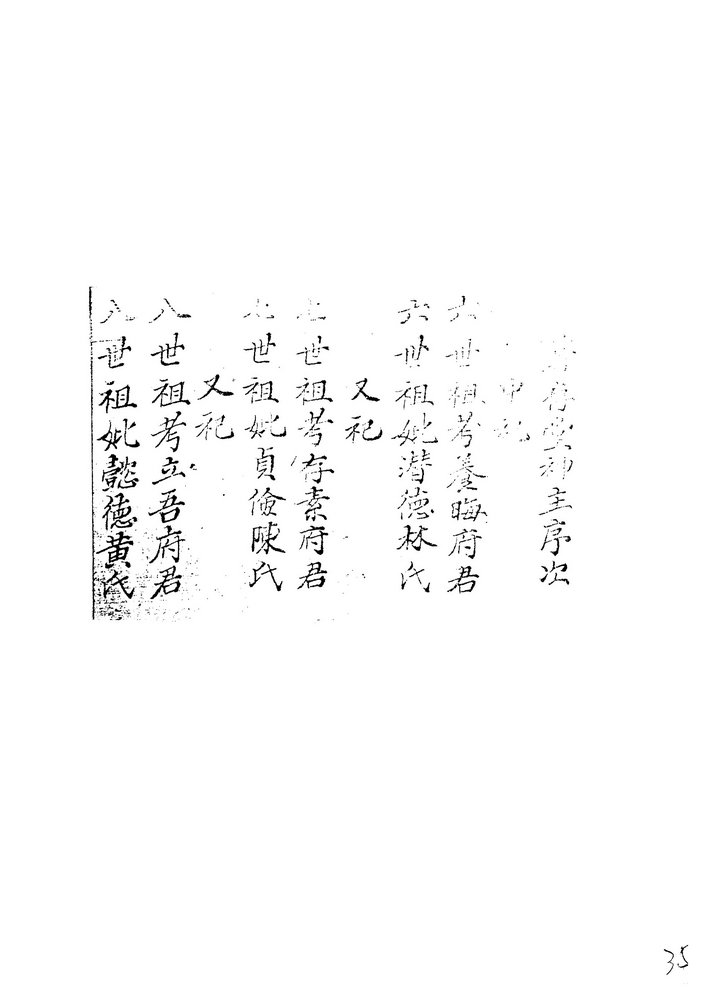 存堂神主序次
中祀
六世祖考養晦府君
六世祖妣潛德林氏
又祀
七世祖考存素府君
七世祖妣貞儉陳氏
又祀
八世祖考立吾府君
八世祖妣懿德黃氏
35